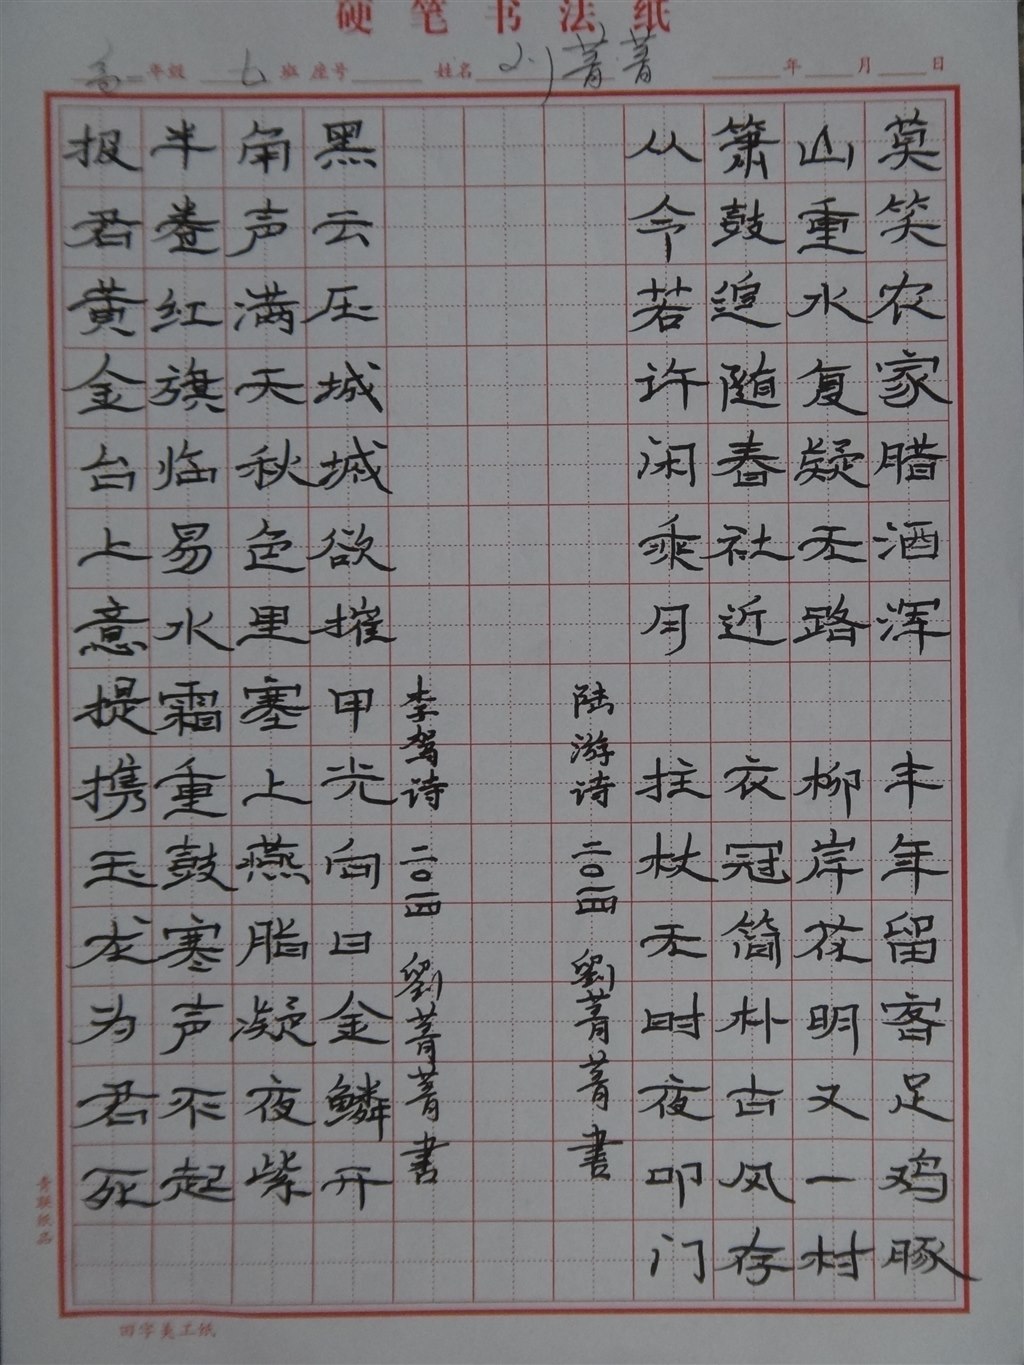 硬笔书法纸
高二年级 七班 座号 姓名 刘菁菁 年 月 日
莫笑农家腊酒浑 丰年留客足鸡豚
山重水复疑无路 柳岸花明又一村
箫鼓追随春社近 衣冠简朴古风存
从今若许闲乘月 拄杖无时夜叩门
陆游诗 二〇一四 劉菁菁書
李贺诗 二〇一四 劉菁菁書
黑云压城城欲摧 甲光向日金鳞开
角声满天秋色里 塞上燕脂凝夜紫
半卷红旗临易水 霜重鼓寒声不起
报君黄金台上意 提携玉龙为君死
青联纸品
田字美工纸